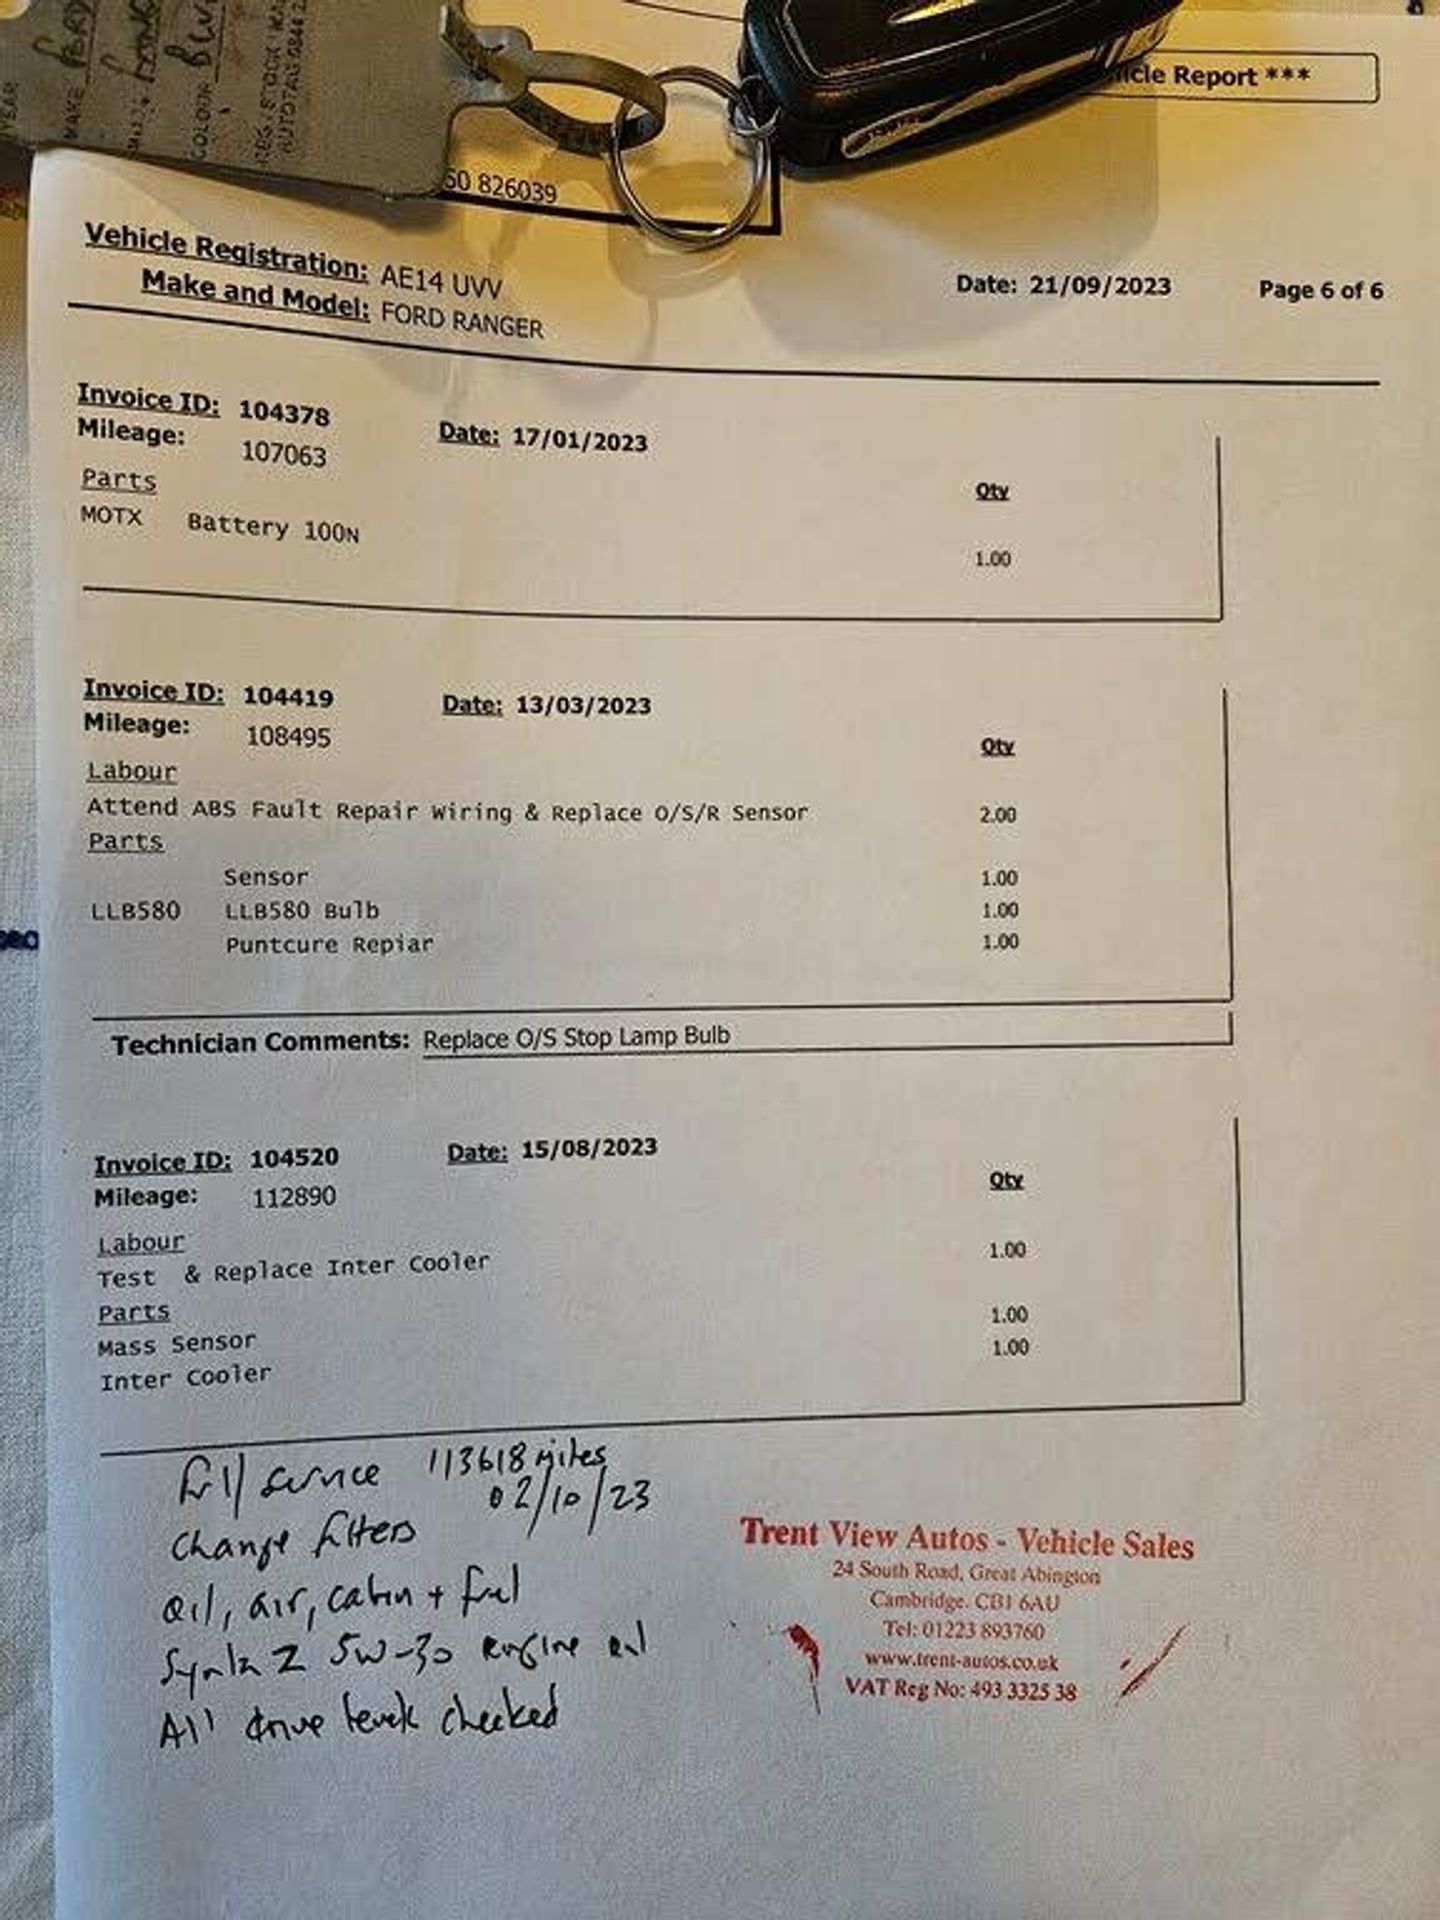 YEAR
MAKE
COLOUR
REG. STOCK
AUTOTAG 0844
icle Report ***
50 826039
Vehicle Registration: AE14 UVV
Make and Model: FORD RANGER
Date: 21/09/2023 Page 6 of 6
Invoice ID: 104378 Date: 17/01/2023
Mileage: 107063
Parts Qty
MOTX Battery 100N 1.00
Invoice ID: 104419 Date: 13/03/2023
Mileage: 108495 Qty
Labour
Attend ABS Fault Repair Wiring & Replace O/S/R Sensor 2.00
Parts
Sensor 1.00
LLB580 LLB580 Bulb 1.00
Puntcure Repiar 1.00
Technician Comments: Replace O/S Stop Lamp Bulb
Invoice ID: 104520 Date: 15/08/2023
Mileage: 112890 Qty
Labour
Test & Replace Inter Cooler 1.00
Parts
Mass Sensor 1.00
Inter Cooler 1.00
Full service 113618 miles
02/10/23
Change filters
Oil, air, cabin + fuel
5W-30 engine oil
All drive levels checked
Trent View Autos - Vehicle Sales
24 South Road, Great Abington
Cambridge. CB1 6AU
Tel: 01223 893760
www.trent-autos.co.uk
VAT Reg No: 493 3325 38